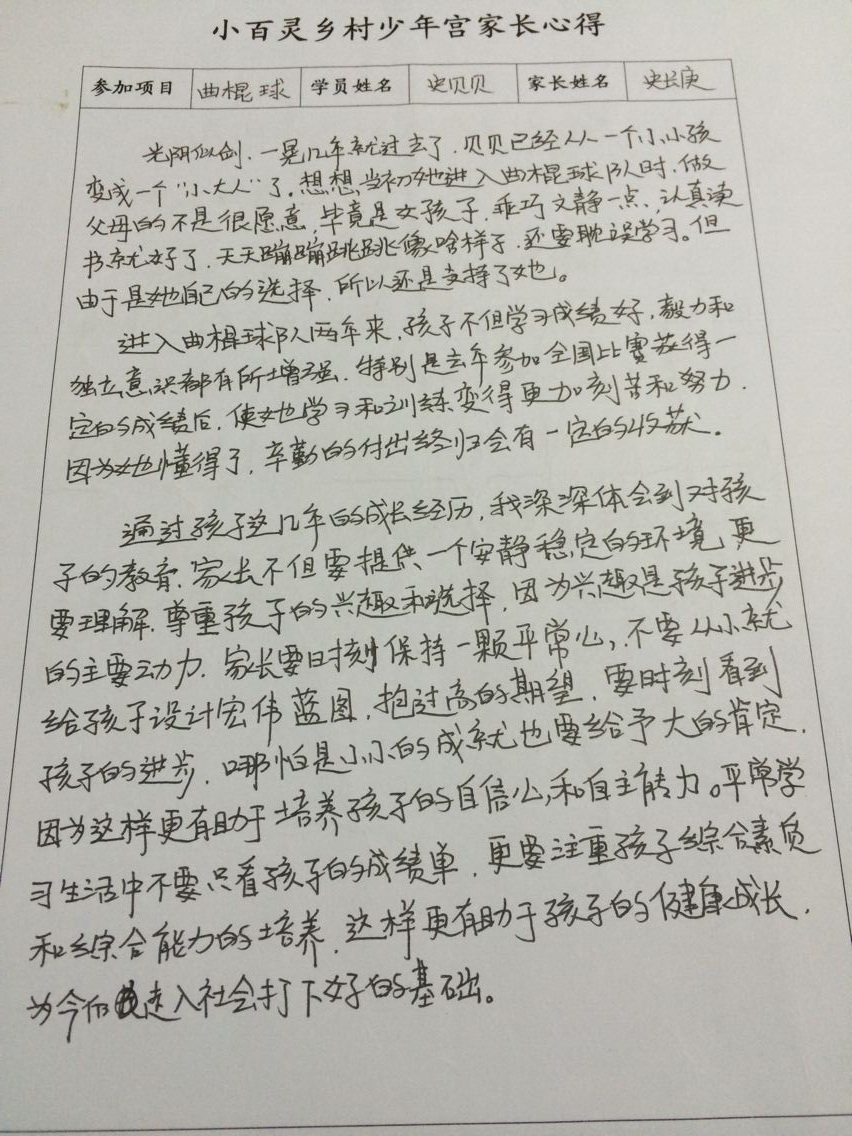 小百灵乡村少年宫家长心得
参加项目 曲棍球 学员姓名 史贝贝 家长姓名 史长庚
光阴似剑，一晃几年就过去了，贝贝已经从一个小小孩
变成一个“小大人”了。想想当初她进入曲棍球队时，做
父母的不是很愿意，毕竟是女孩子，乖巧文静一点，认真读
书就好了，天天蹦蹦跳跳像啥样子，还要耽误学习。但
由于是她自己的选择，所以还是支持了她。
进入曲棍球队两年来，孩子不但学习成绩好，毅力和
独立意识都有所增强，特别是去年参加全国比赛获得一
定的成绩后，使她学习和训练变得更加刻苦和努力．
因为她懂得了，辛勤的付出终归会有一定的收获。
通过孩子这几年的成长经历，我深深体会到对孩
子的教育，家长不但要提供一个安静稳定的环境，更
要理解．尊重孩子的兴趣和选择，因为兴趣是孩子进步
的主要动力．家长要时刻保持一颗平常心，不要从小就
给孩子设计宏伟蓝图，抱过高的期望，要时刻看到
孩子的进步，哪怕是小小的成就也要给予大的肯定．
因为这样更有助于培养孩子的自信心和自主能力。平常学
习生活中不要只看孩子的成绩单，更要注重孩子综合素质
和综合能力的培养，这样更有助于孩子的健康成长，
为今后走入社会打下好的基础。